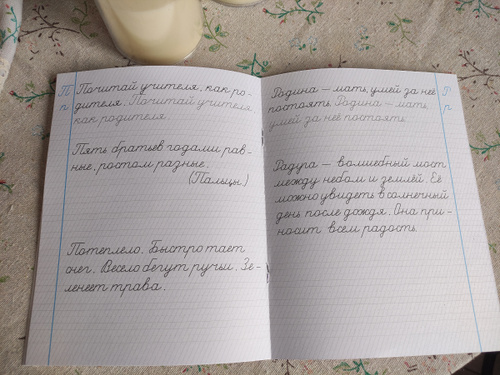 П
п
Почитай учителя, как ро-
дителя. Почитай учителя,
как родителя.
Пять братьев годами рав-
ные, ростом разные.
(Пальцы.)
Потеплело. Быстро тает
снег. Весело бегут ручьи. Зе-
ленеет трава.
Родина – мать, умей за неё
постоять. Родина – мать,
умей за неё постоять.
Р
р
Радуга – волшебный мост
между небом и землёй. Её
можно увидеть в солнечный
день после дождя. Она при-
носит всем радость.